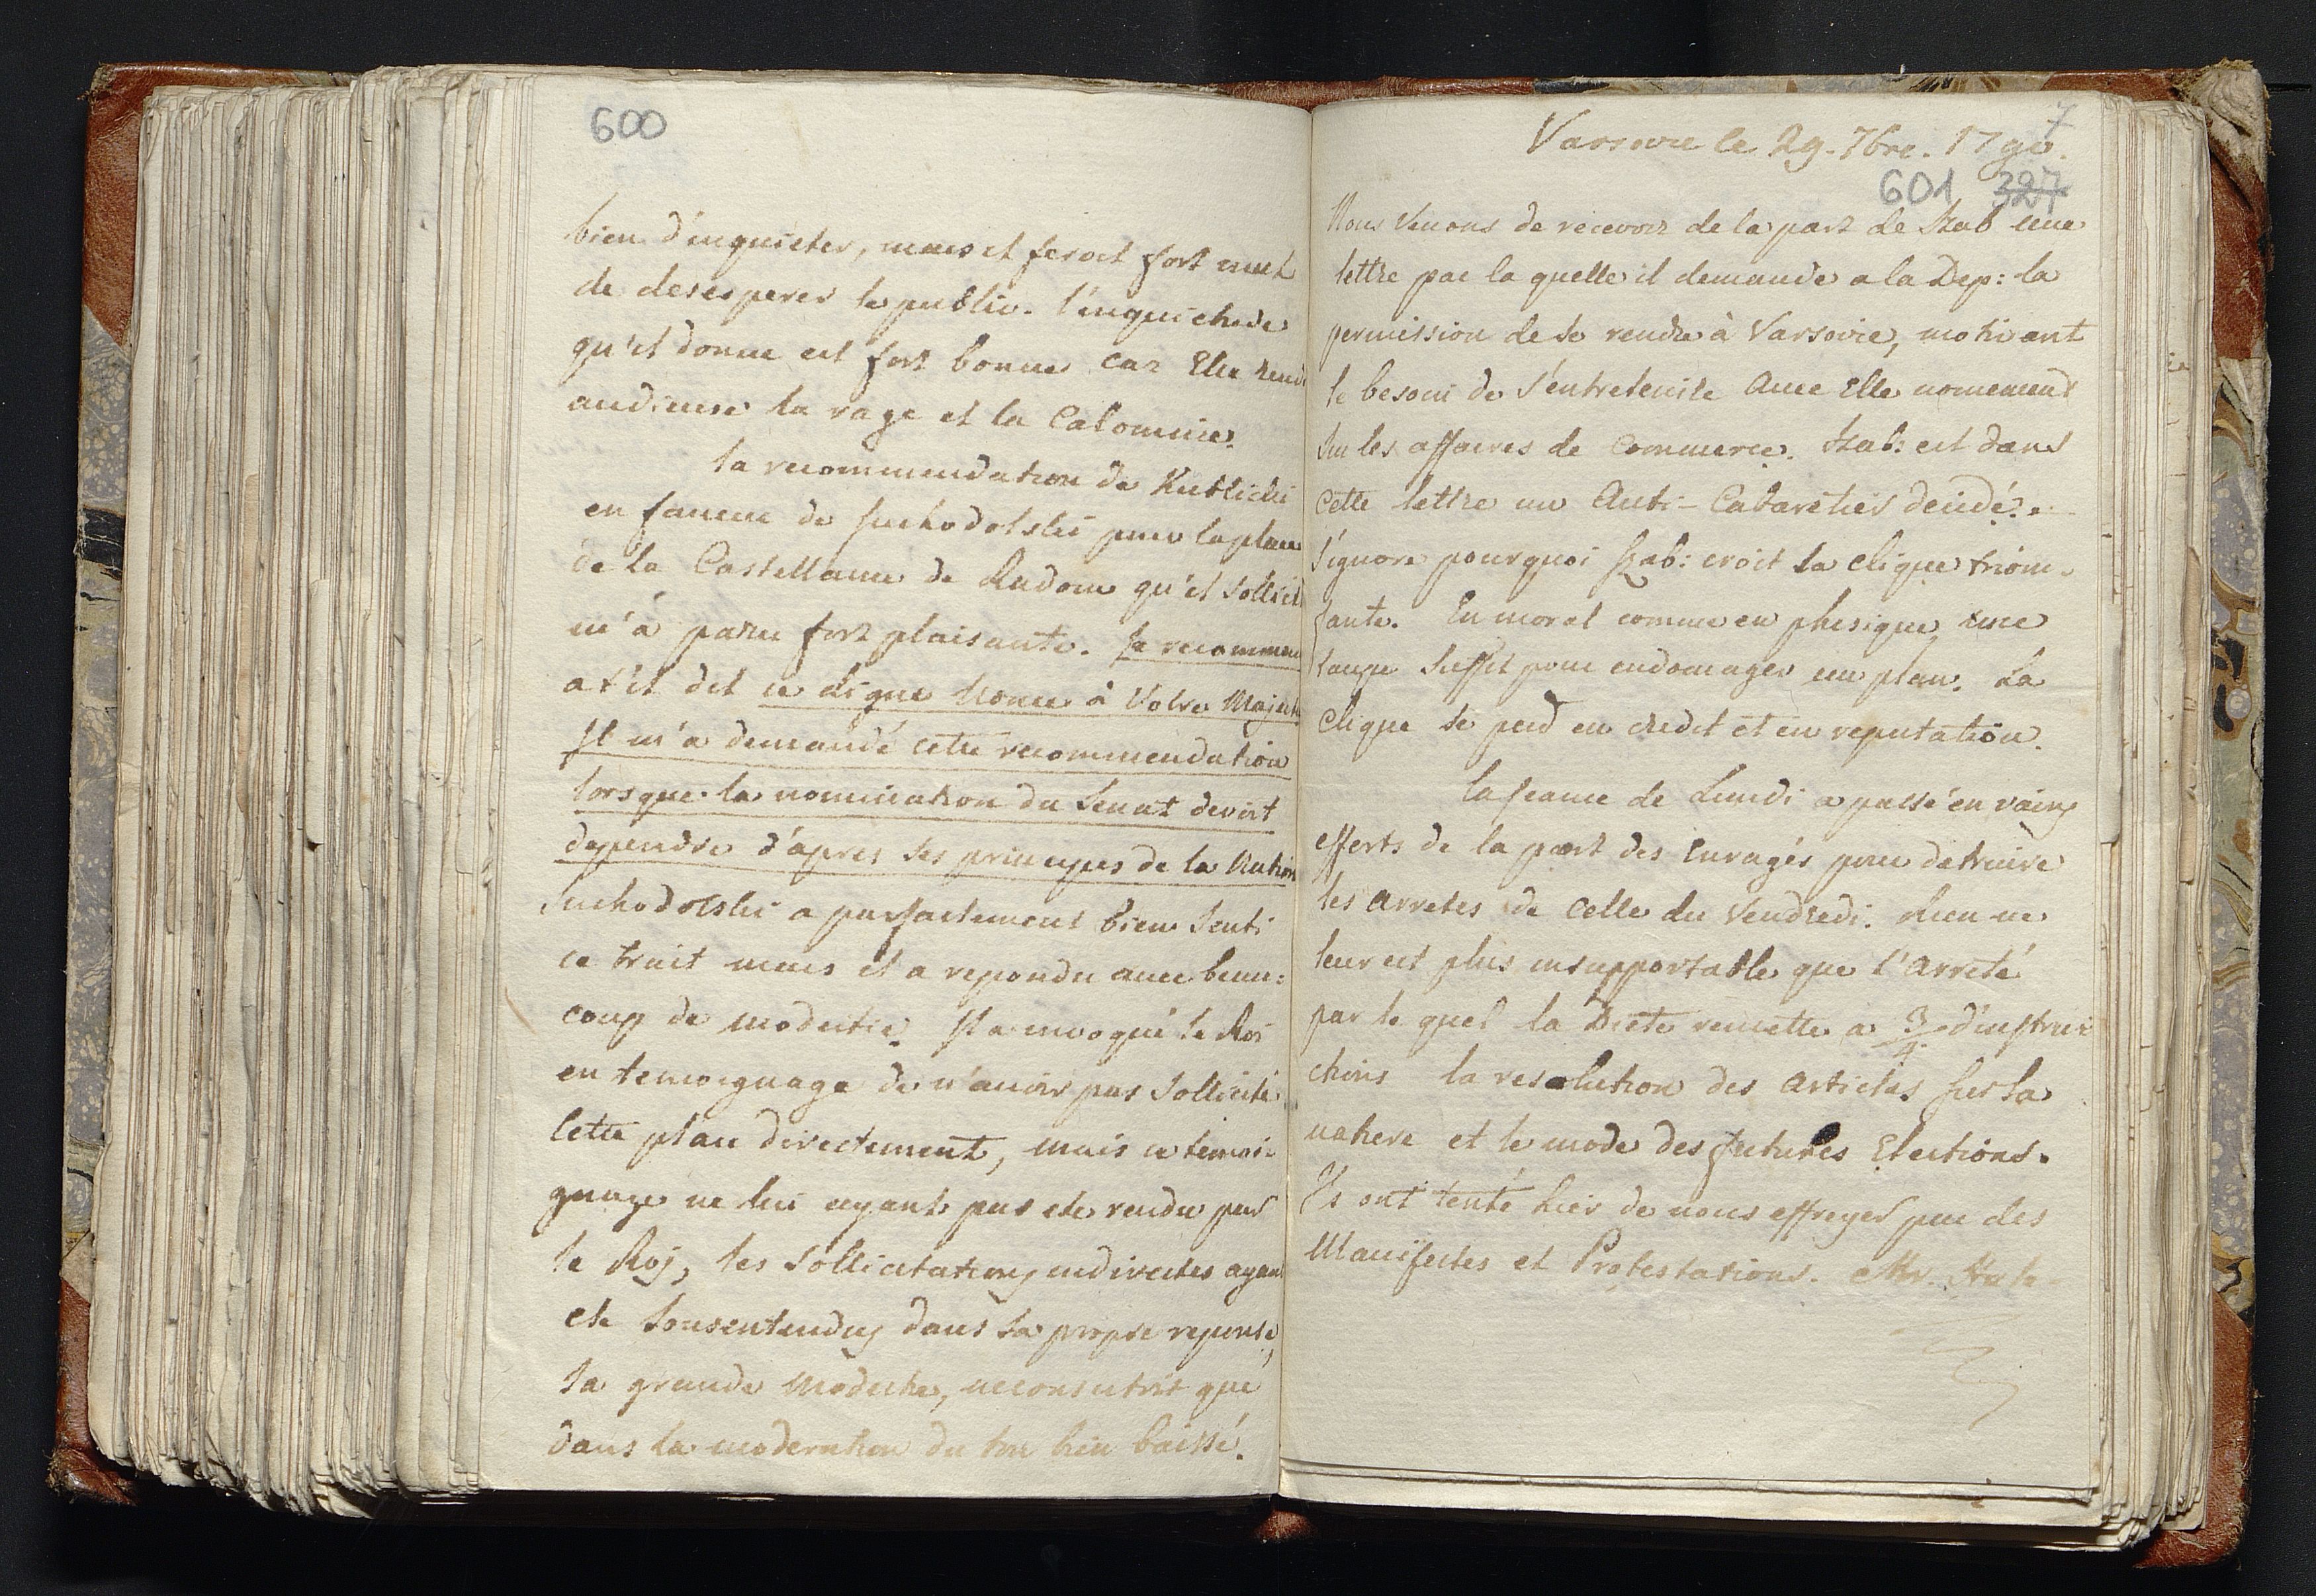 600
bien d'inquieter, mais il seroit fort mal
de desesperer le public. l'inquietude
qu'il donne est fort bonne car Elle rend
audieuse la rage et la Calomnie.
la recommendation de Kublicki
en faveur de Suchodolski pour la place
de la Castellanie de Radom qu'il sollicit
m'a paru fort plaisante. Je recommen
at'il dit ce digne home à Votre Majeste
Il m'a demandé cette recommendation
lorsque la nomination du Senat devoit
dependre d'apres ses principes de la Nation
Suchodolski a parfaitement bien senti
ce trait mais il a repondu avec beau:
coup de modestie. Il a invoqué le Roi
en temoignage de n'avoir pas sollicité
cette place directement, mais ce temoi-
gnage ne lui ayant pas ete rendu par
le Roj, les sollicitations indirectes ayant
ete sousentendus dans sa propre reponse,
sa grande modestie, ne consistoit que
dans la moderation du ton bien baissé.
7
Varsovie le 29. 7bre. 1790.
601 327
Nous venons de recevoir de la part de Szab une
lettre par la quelle il demande a la Dep: la
permission de se rendre à Varsovie, motivant
le besoin de s'entretenire avec Elle nomement
sur les affaires de Commerce. Szab: est dans
cette lettre un Anti-Cabaretier decidé.
J'ignore pourquoi Szab: croit la clique triom-
fante. En moral comme en phisique une
taupe suffit pour endomager un plan. La
clique se perd en credit et en reputation.
la seance de Lundi a passé en vains
efferts de la part des Enragés pour detruire
les arretes de celle du Vendredi. Rien ne
leur est plus insupportable que l'arreté
par le quel la Diete remette a 3/4 d'instruc
tions la resolution des articles sur la
nature et le mode des futures Elections.
Ils ont tenté hier de nous effreyer par des
Manifestes et Protestations. Mr.